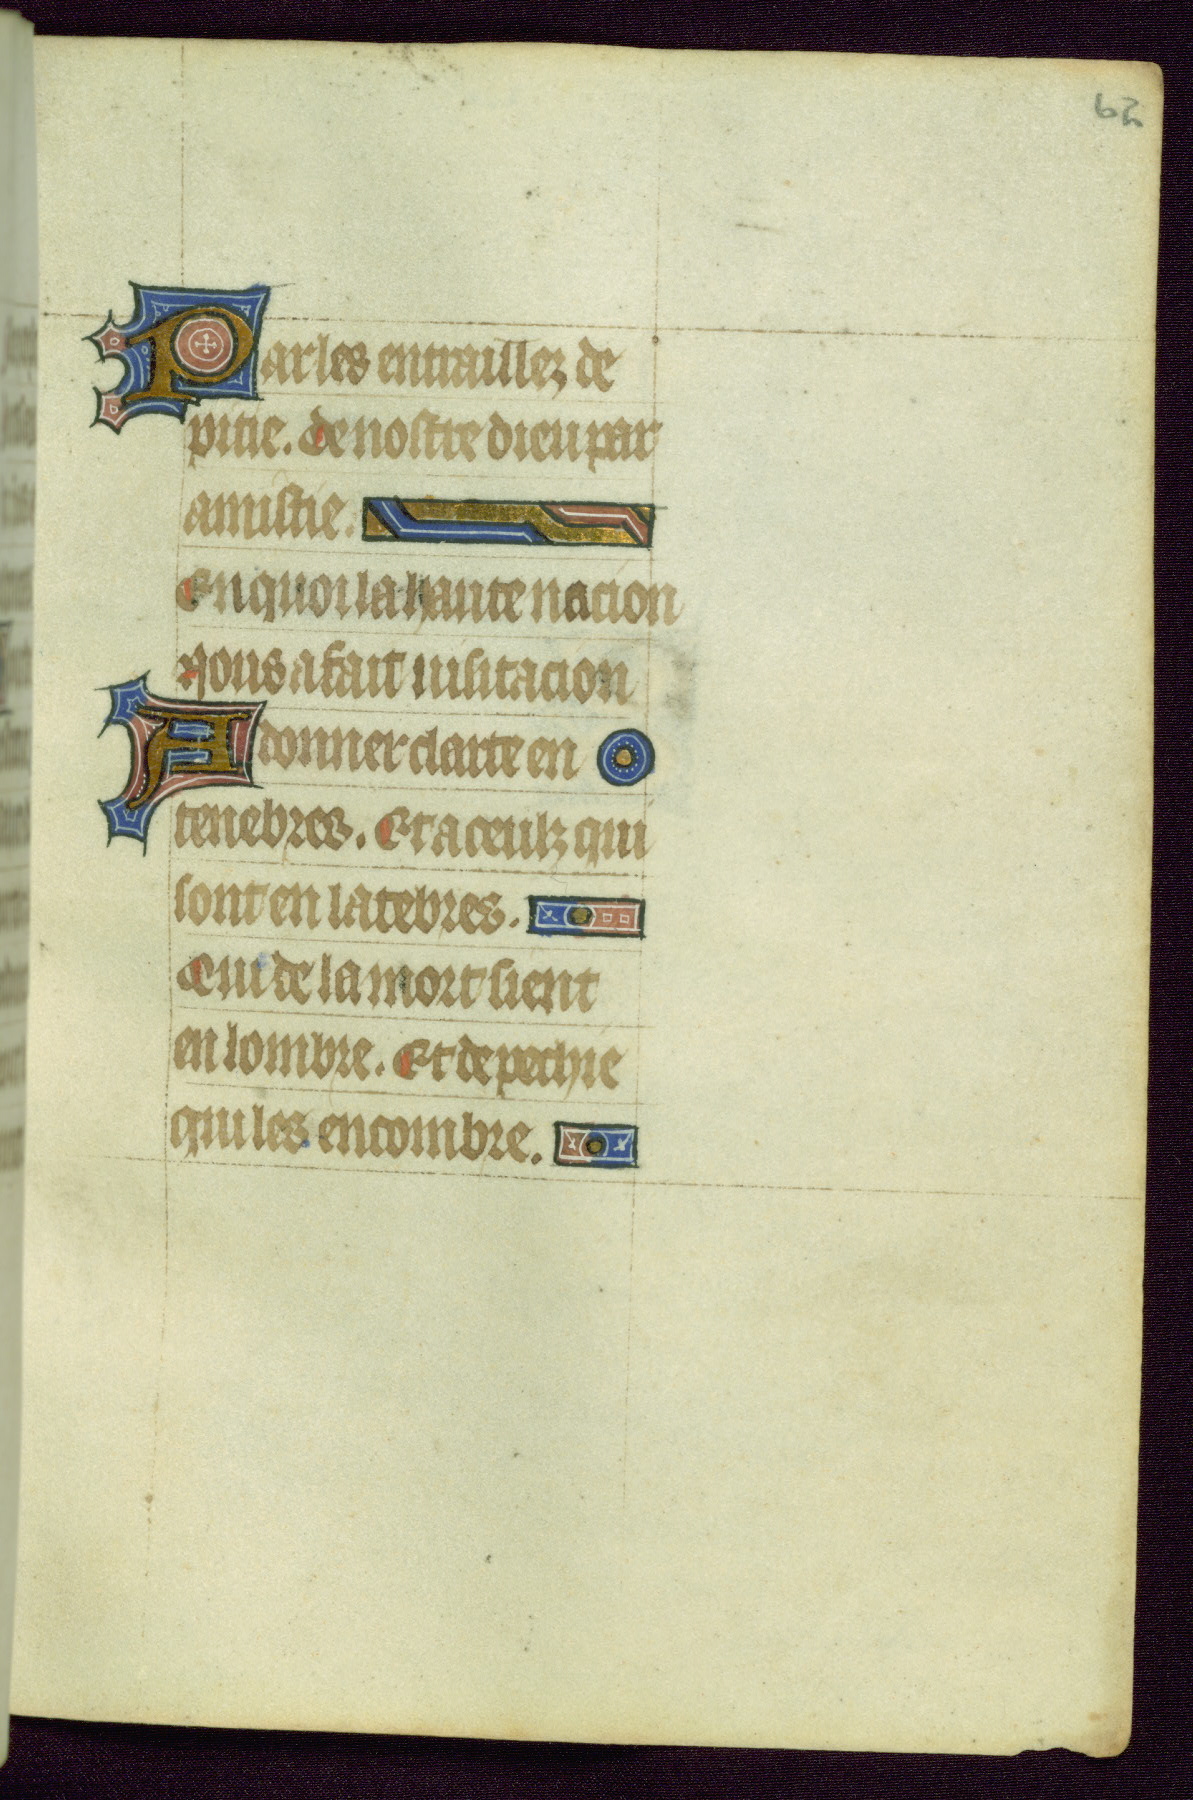 62
Par les entraillez de
pitie. de nostre dieu par
amistie.
En quoi la haute nacion
Nous a fait uisitacion
A donner clarte en
tenebres. Et a ceulz qui
sont en latebres.
Qui de la mort sient
en lombre. Et de pechie
qui les encombre.